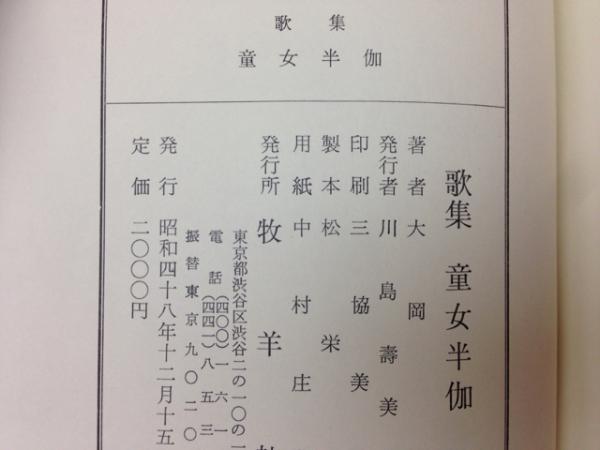 歌集
童女半伽
歌集 童女半伽
著者 大岡
発行者 川島壽美
印刷 三協美
製本 松栄
用紙 中村庄
発行所 牧羊
東京都渋谷区渋谷二の一〇の一
電話(四〇〇)一六一
(四四一)八五三
振替東京九〇二〇
発行 昭和四十八年十二月十五
定価 二〇〇〇円